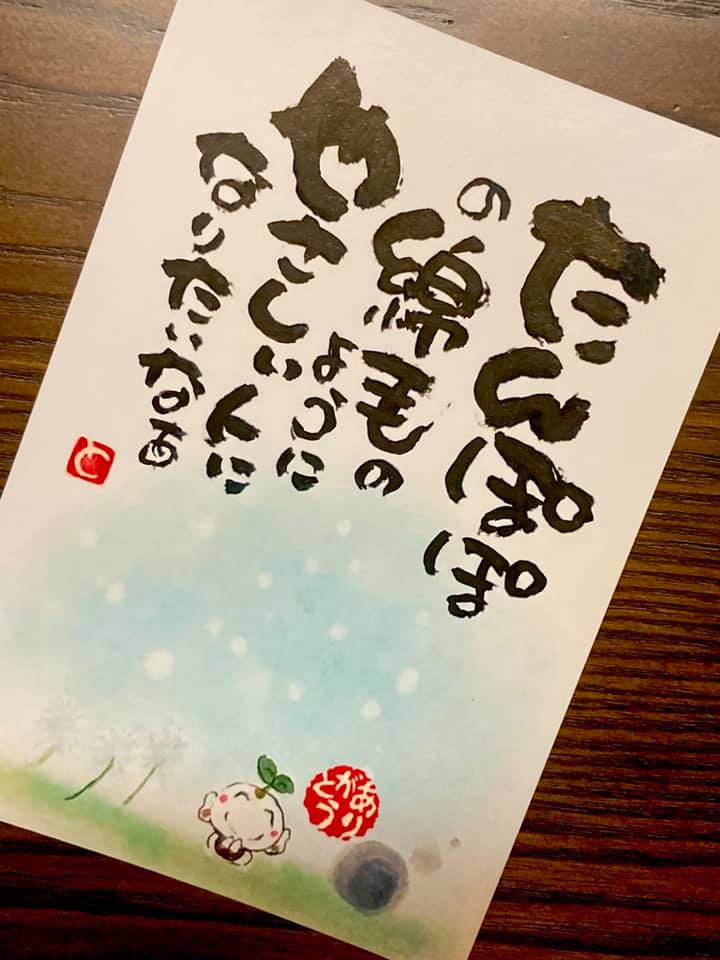 たんぽぽ
の綿毛の
ように
やさしい人に
なりたいなあ
ありがとう